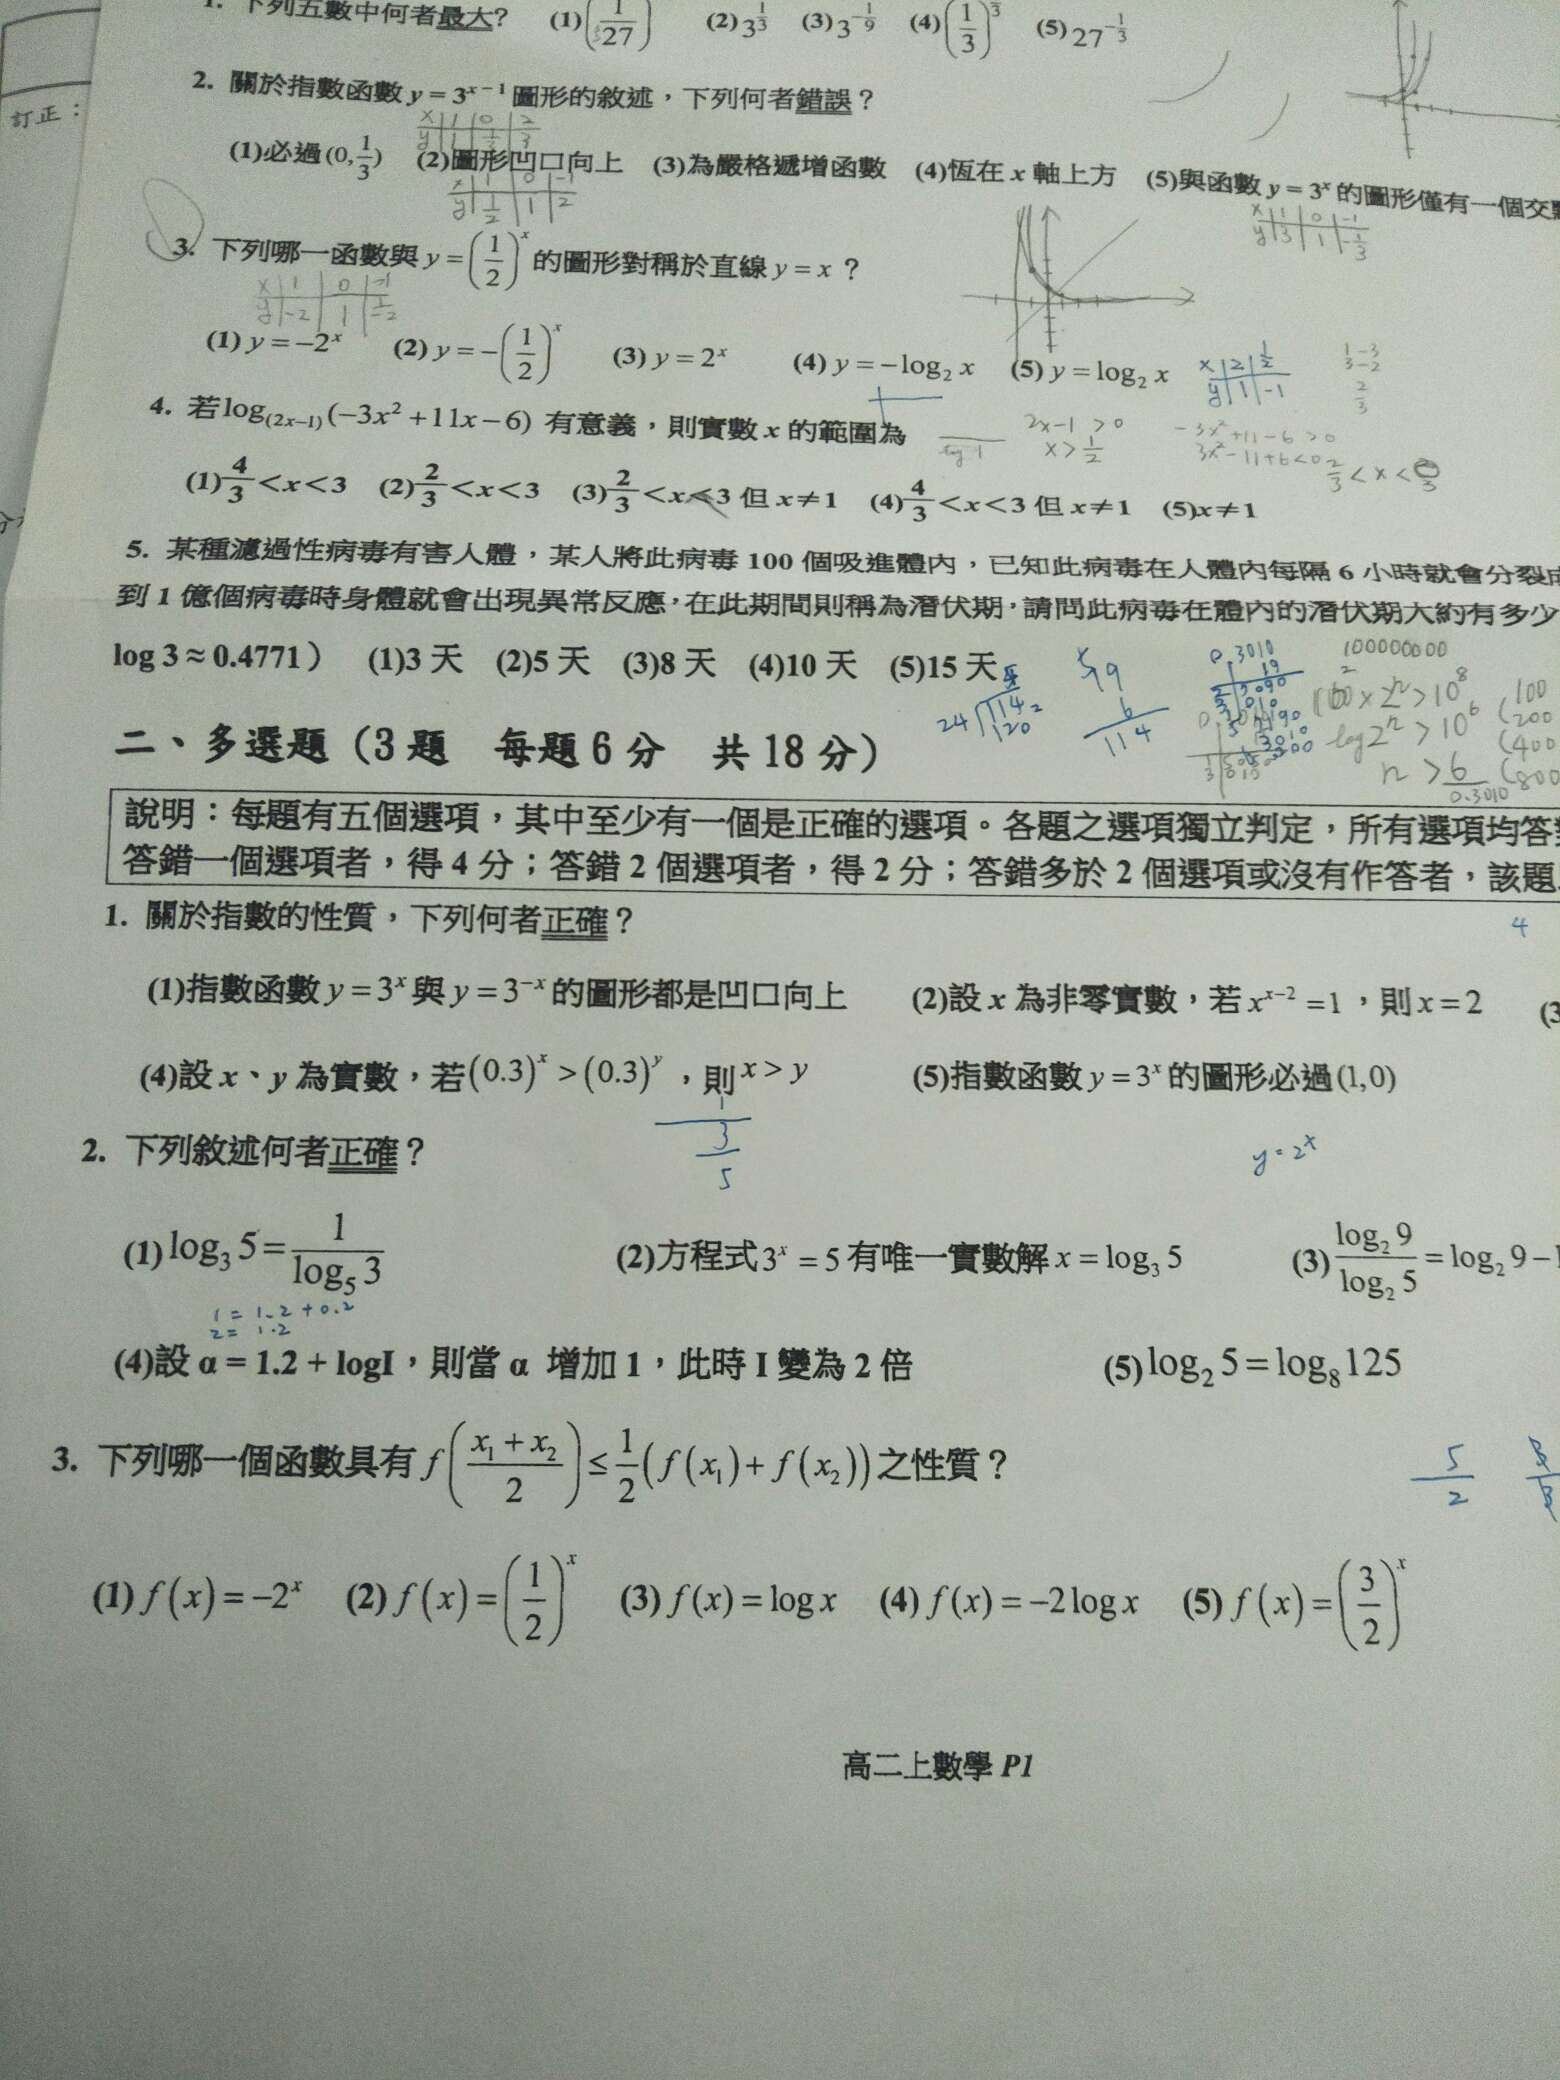 1. 下列五數中何者最大? (1)(1/27) (2)3^(1/3) (3)3^(-1/9) (4)(1/3)^(1/3) (5)27^(-1/3)
訂正：
2. 關於指數函數 y = 3^(x-1) 圖形的敘述，下列何者錯誤？
(1)必過(0,1/3) (2)圖形凹口向上 (3)為嚴格遞增函數 (4)恆在 x 軸上方 (5)與函數 y = 3^x 的圖形僅有一個交
3. 下列哪一函數與 y = (1/2)^x 的圖形對稱於直線 y = x ？
(1) y = -2^x (2) y = -(1/2)^x (3) y = 2^x (4) y = -log₂ x (5) y = log₂ x
4. 若 log_(2x-1)(-3x²+11x-6) 有意義，則實數 x 的範圍為
2x-1 > 0
x > 1/2
-3x²+11-6 > 0
3x²-11+6 < 0
(1) 4/3 < x < 3 (2) 2/3 < x < 3 (3) 2/3 < x < 3 但 x≠1 (4) 4/3 < x < 3 但 x≠1 (5) x≠1
5. 某種濾過性病毒有害人體，某人將此病毒 100 個吸進體內，已知此病毒在人體內每隔 6 小時就會分裂
到 1 億個病毒時身體就會出現異常反應，在此期間則稱為潛伏期，請問此病毒在體內的潛伏期大約有多少
log 3 ≈ 0.4771） (1)3 天 (2)5 天 (3)8 天 (4)10 天 (5)15 天
24 114 120
6
114
0.3010
19
100000000
log 2ⁿ > 10⁶
n > 6/0.3010
二、多選題（3 題 每題 6 分 共 18 分）
說明：每題有五個選項，其中至少有一個是正確的選項。各題之選項獨立判定，所有選項均答
答錯一個選項者，得 4 分；答錯 2 個選項者，得 2 分；答錯多於 2 個選項或沒有作答者，該題
1. 關於指數的性質，下列何者正確？
4
(1)指數函數 y = 3^x 與 y = 3^(-x) 的圖形都是凹口向上 (2)設 x 為非零實數，若 x^(x-2) = 1，則 x = 2 (3
(4)設 x、y 為實數，若 (0.3)^x > (0.3)^y，則 x > y (5)指數函數 y = 3^x 的圖形必過(1,0)
1
3
5
2. 下列敘述何者正確？
y = 2^x
(1) log₃ 5 = 1/log₅ 3 (2)方程式 3^x = 5 有唯一實數解 x = log₃ 5 (3) log₂ 9/log₂ 5 = log₂ 9 −
1 = 1.2 + 0.2
2 = 1.2
(4)設 α = 1.2 + logI，則當 α 增加 1，此時 I 變為 2 倍 (5) log₂ 5 = log₈ 125
3. 下列哪一個函數具有 f((x₁+x₂)/2) ≤ 1/2(f(x₁)+f(x₂)) 之性質？
5
2
(1) f(x) = -2^x (2) f(x) = (1/2)^x (3) f(x) = log x (4) f(x) = -2log x (5) f(x) = (3/2)^x
高二上數學 P1